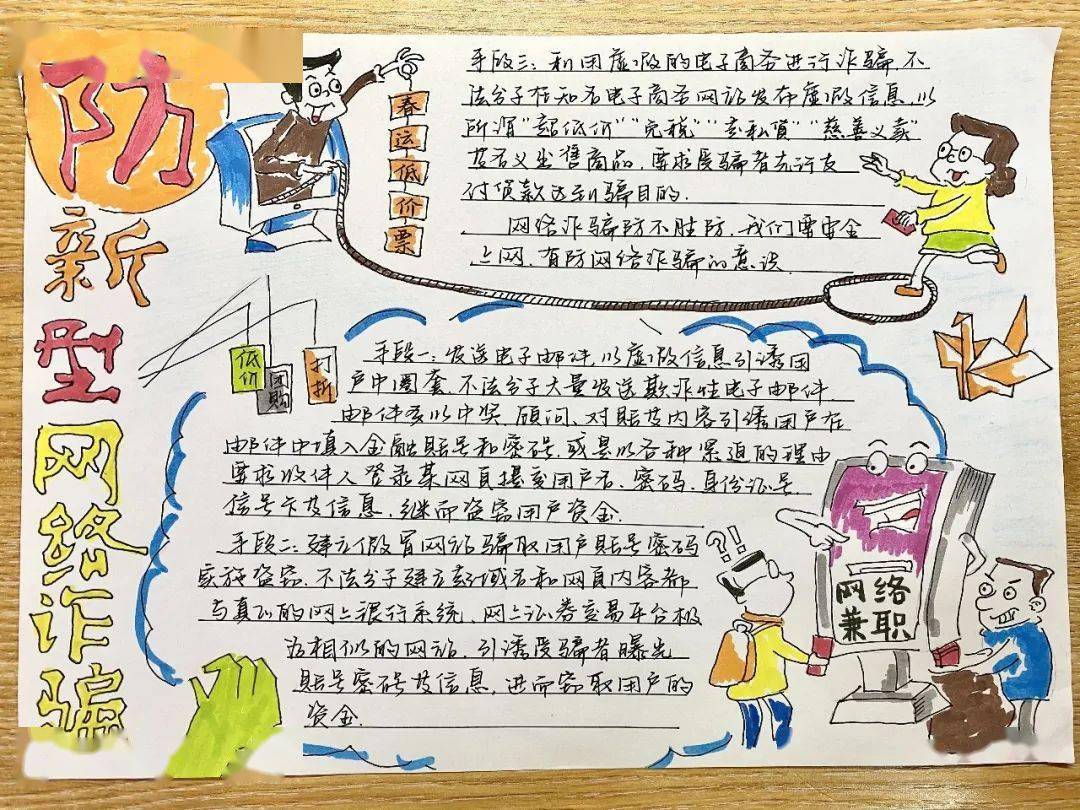 防新型网络诈骗
春运低价票
手段三：利用虚假的电子商务进行诈骗，不
法分子在知名电子商务网站发布虚假信息，以
所谓“超低价”“免税”“走私货”“慈善义卖”
等名义出售商品，要求受骗者先行支
付货款达到骗目的.
网络诈骗防不胜防，我们要安全
上网，有防网络诈骗的意识.
低价
团购
打折
手段一：发送电子邮件，以虚假信息引诱用
户中圈套，不法分子大量发送欺诈性电子邮件，
邮件多以中奖、顾问、对账等内容引诱用户在
邮件中填入金融账号和密码，或是以各种紧迫的理由
要求收件人登录某网页提交用户名、密码、身份证号
信号卡等信息，继而盗窃用户资金.
手段二：建立假冒网站骗取用户账号密码
实施盗窃，不法分子建立起域名和网页内容都
与真正的网上银行系统、网上证券交易平台极
为相似的网站，引诱受骗者曝光
账号密码等信息，进而窃取用户的
资金.
?!!
网络
兼职